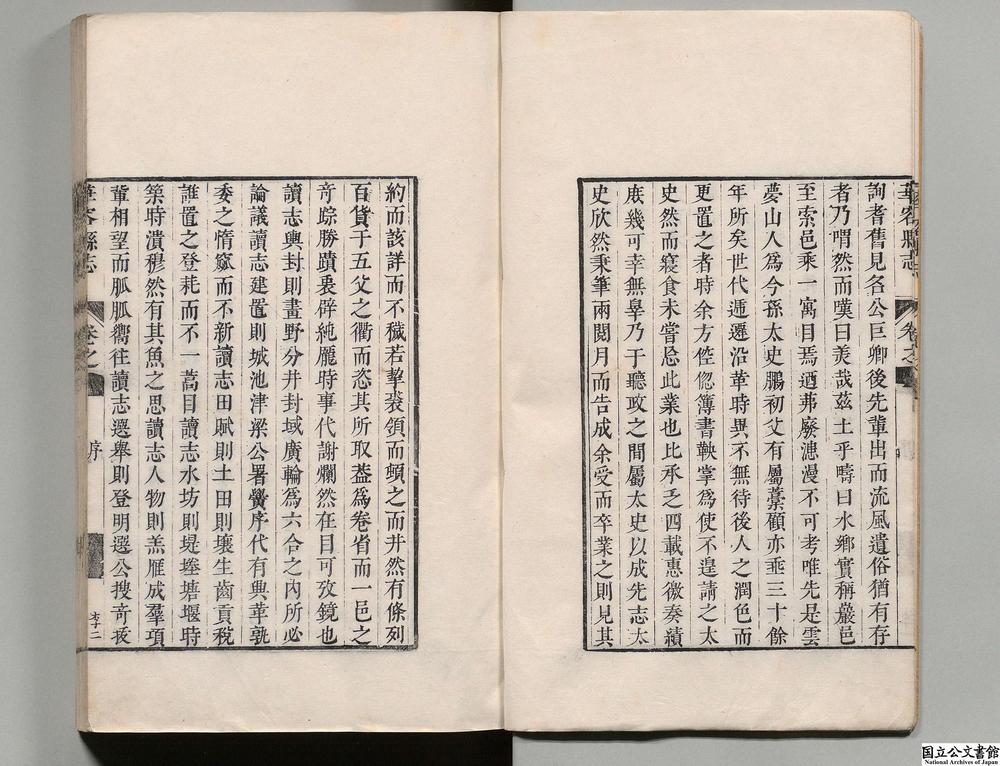 華容縣志
卷之
詢耆舊見名公巨卿後先輩出而流風遺俗猶有存
者乃喟然而嘆曰羨哉茲土乎疇曰水鄉實稱嚴邑
至索邑乘一寓目焉迺茀廢漶漫不可考唯先是雲
夢山人為今孫太史鵬初父有屬藁顧亦垂三十餘
年所矣世代遞遷沿革時異不無待後人之潤色而
更置之者時余方倥偬簿書鞅掌為使不遑請之太
史然而寢食未嘗忘此業也比承乏四載惠徼奏績
庻幾可幸無辠乃于聽政之間屬太史以成先志太
史欣然秉筆兩閱月而告成余受而卒業之則見其
約而該詳而不穢若挈裘領而頓之而井然有條列
百貨于五父之衢而恣其所取葢為卷省而一邑之
竒踪勝蹟裒僻純龐時事代謝爛然在目可攷鏡也
讀志輿封則畫野分井封域廣輪為六合之內所必
論議讀志建置則城池津梁公署黌序代有興革孰
委之惰窳而不新讀志田賦則土田則壤生齒貢稅
誰置之登耗而不一蒿目讀志水坊則堤塍𡍼堰時
築時潰穆然有其魚之思讀志人物則羔雁成羣項
軰相望而胍胍嚮往讀志選舉則登明選公搜竒荄
華容縣志
卷之
序
李二
国立公文書館
National Archives of Japan